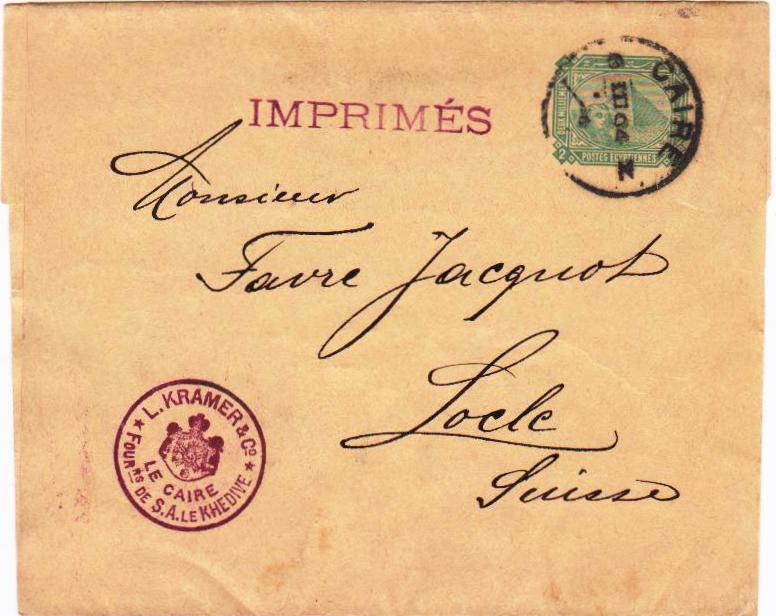 IMPRIMÉS
CAIRE
III 04
N
DEUX MILLIEMES
2
POSTES EGYPTIENNES
Monsieur
Favre Jacquot
Locle
Suisse
L. KRAMER & Co
LE CAIRE
FOURrs DE S.A. LE KHEDIVE